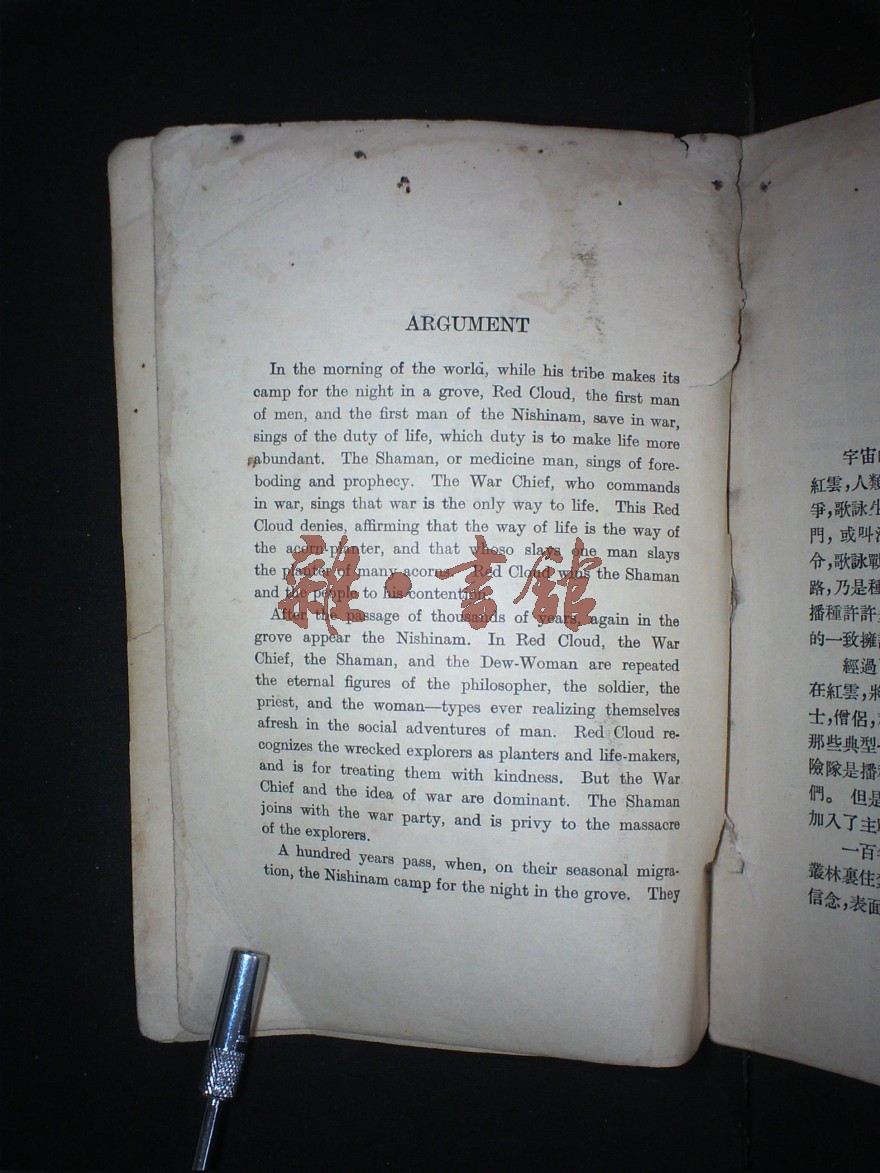 ARGUMENT
In the morning of the world, while his tribe makes its
camp for the night in a grove, Red Cloud, the first man
of men, and the first man of the Nishinam, save in war,
sings of the duty of life, which duty is to make life more
abundant. The Shaman, or medicine man, sings of fore-
boding and prophecy. The War Chief, who commands
in war, sings that war is the only way to life. This Red
Cloud denies, affirming that the way of life is the way of
the acorn-planter, and that whoso slays one man slays
the planter of many acorns. Red Cloud wins the Shaman
and the people to his contention.
After the passage of thousands of years, again in the
grove appear the Nishinam. In Red Cloud, the War
Chief, the Shaman, and the Dew-Woman are repeated
the eternal figures of the philosopher, the soldier, the
priest, and the woman—types ever realizing themselves
afresh in the social adventures of man. Red Cloud re-
cognizes the wrecked explorers as planters and life-makers,
and is for treating them with kindness. But the War
Chief and the idea of war are dominant. The Shaman
joins with the war party, and is privy to the massacre
of the explorers.
A hundred years pass, when, on their seasonal migra-
tion, the Nishinam camp for the night in the grove. They
雜·書館
宇宙
紅雲,人類
爭,歌詠
門,或叫
分,歌詠戰
路,乃是種
播種許許
的一致擁
經過
在紅雲,將
士,僧侶,
那些典型
險隊是播
們。但是
加入了主
一百
叢林裏住
信念,表面